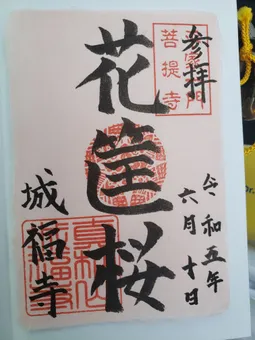 参拝
菩提寺
令和五年
六月十日
花筐桜
城福寺